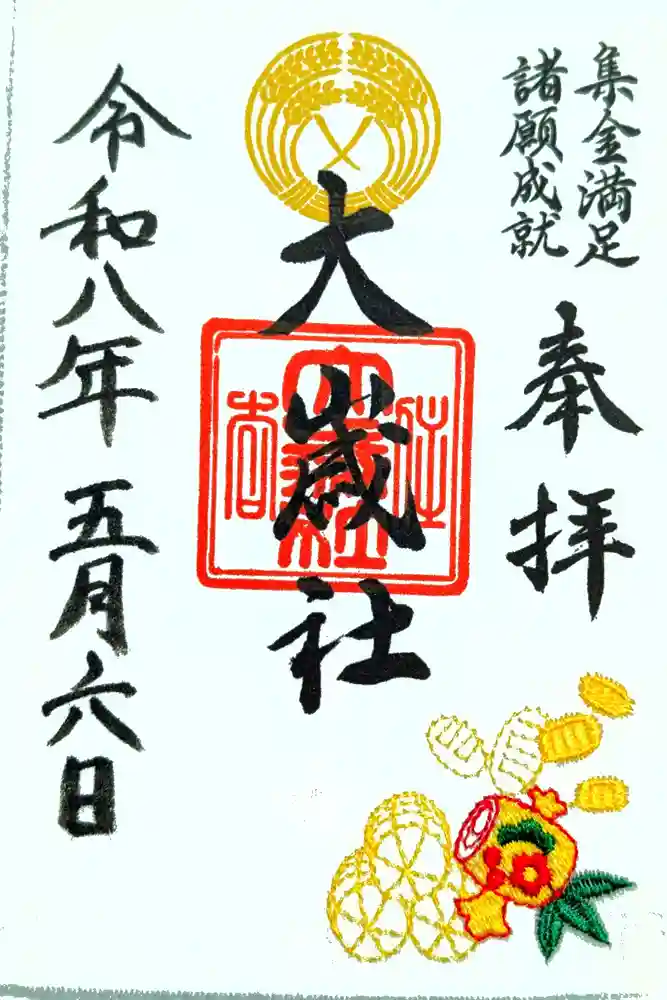 集金満足
諸願成就
奉拝
大歳社
住吉
大歳社
令和八年五月六日